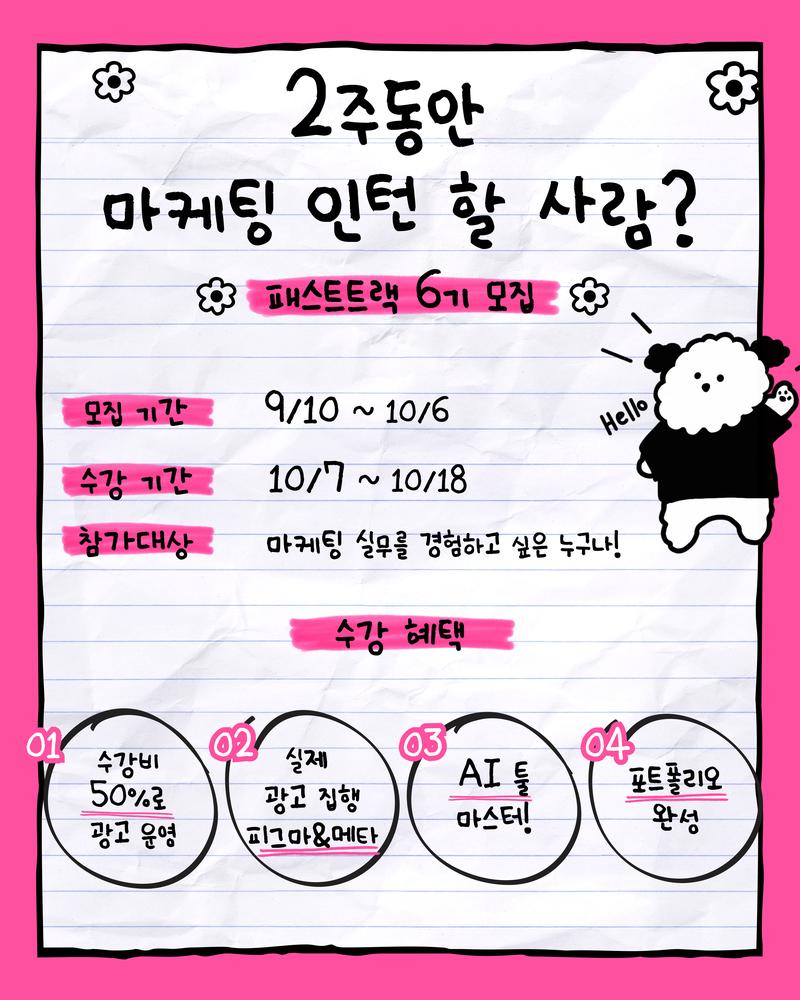 2주동안
마케팅 인턴 할 사람?
패스트트랙 6기 모집
Hello
모집 기간 9/10 ~ 10/6
수강 기간 10/7 ~ 10/18
참가대상 마케팅 실무를 경험하고 싶은 누구나!
수강 혜택
01
수강비
50%로
광고 운영
02
실제
광고 집행
피그마&메타
03
AI 툴
마스터!
04
포트폴리오
완성